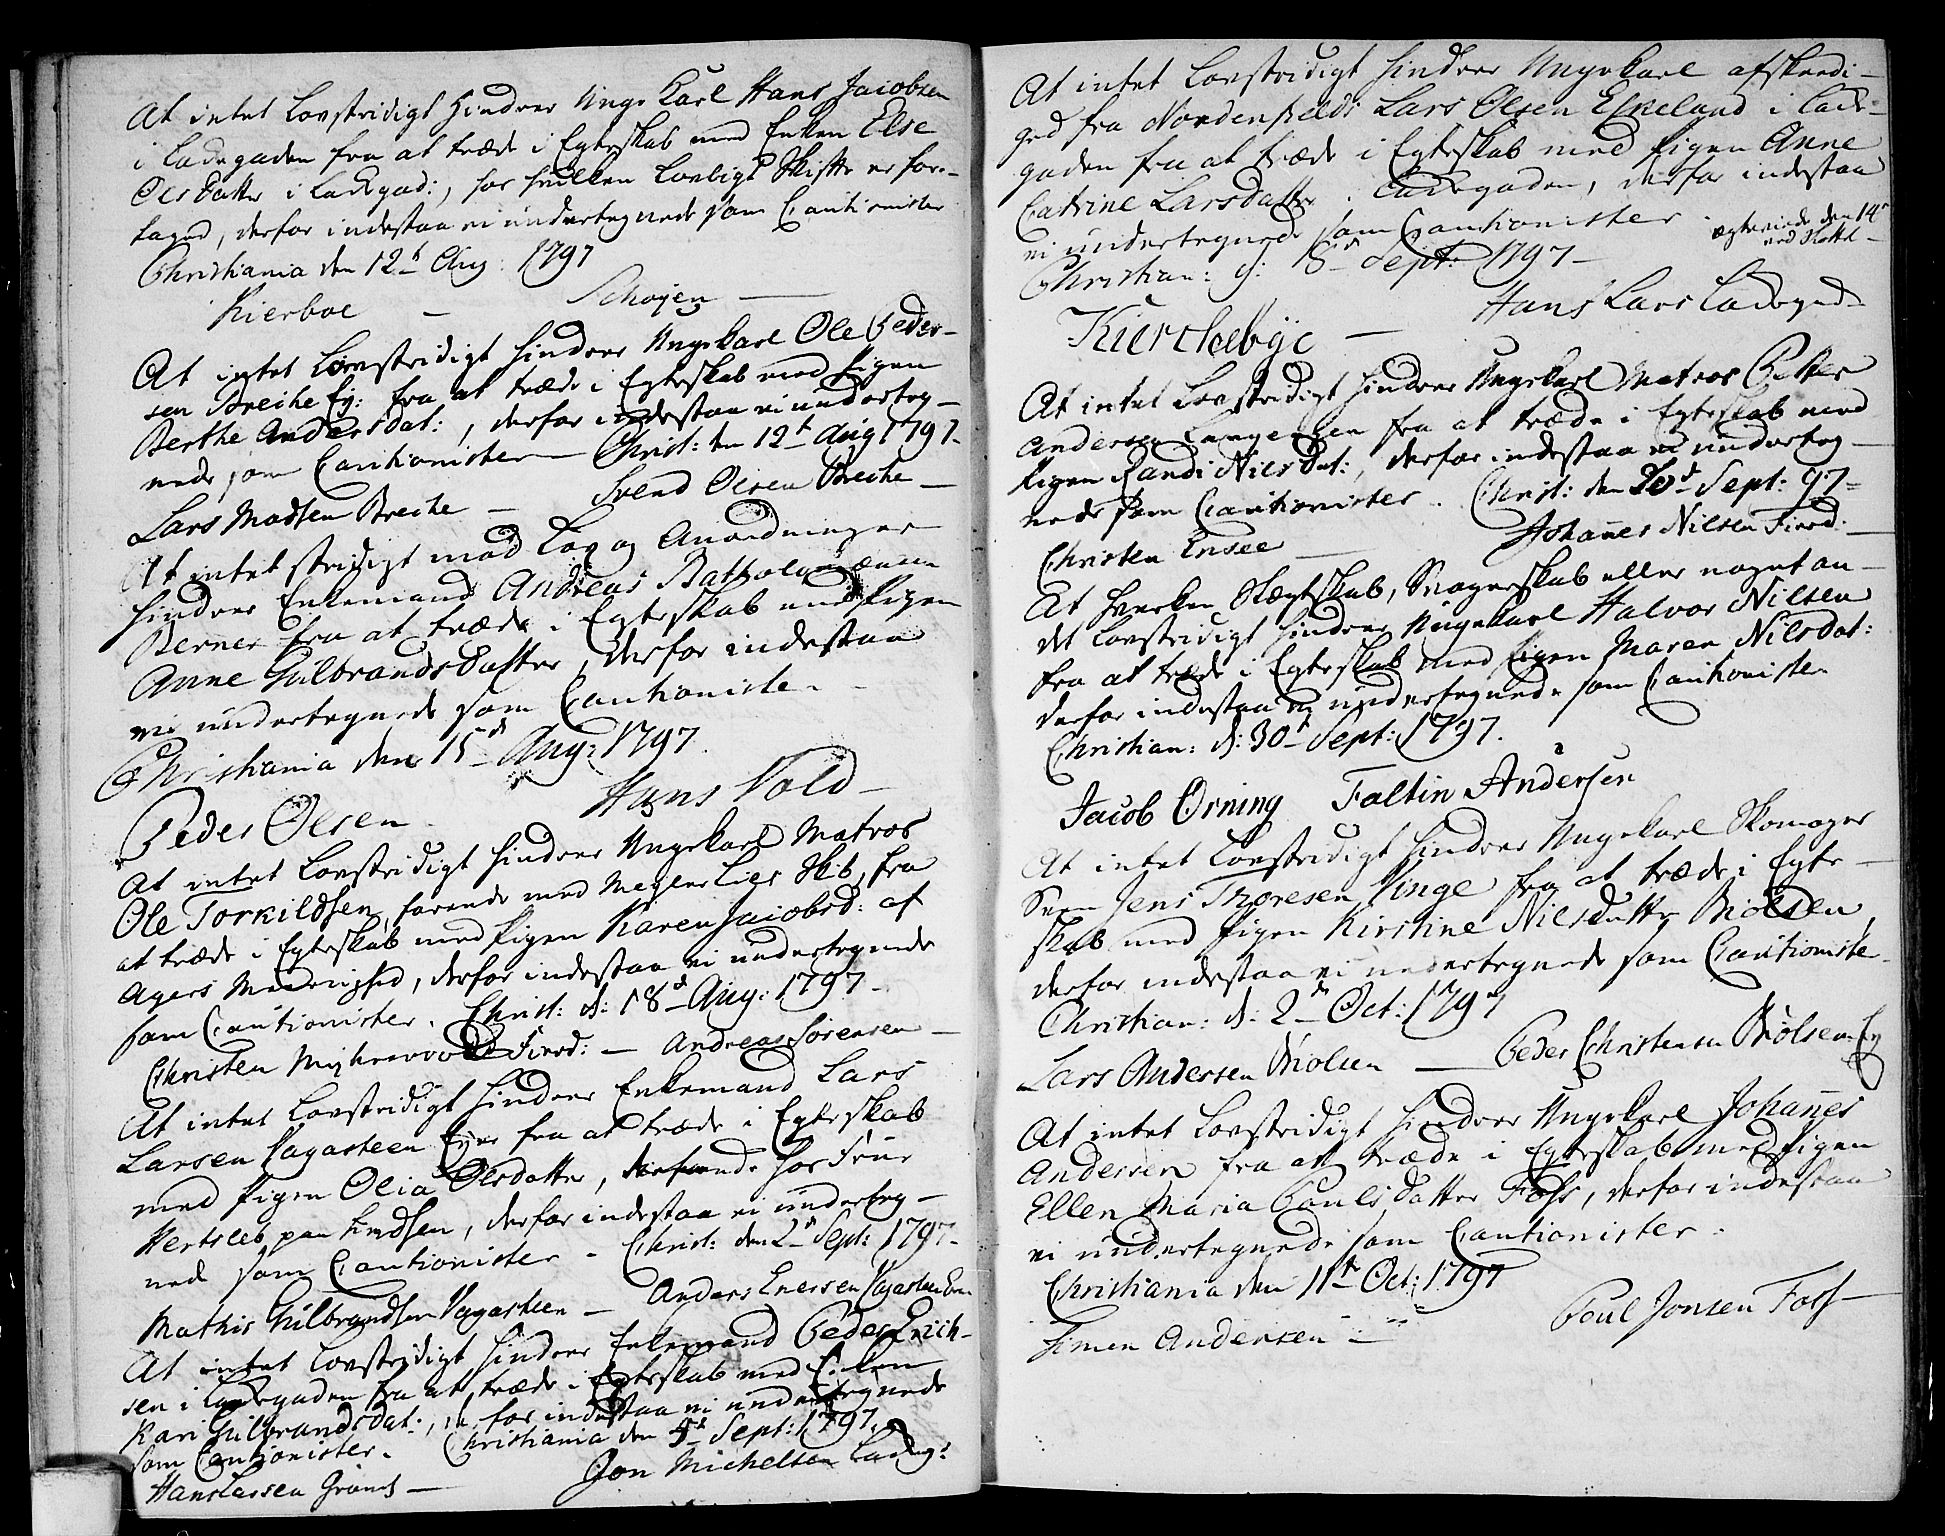 At intet Lovstridigt hindrer Unge Karl Hans Jacobsen
i Ladegaden fra at træde i Egteskab med Enken Else
Ols Datter i Ladegad:, hos hvilken Lovligt Skifte er fore-
taged, derfor indestaa vi undertegnede som Cautionister
Christiania den 12t Aug: 1797
Kierboe - Schøyen -
At intet Lovstridigt hindrer Ungekarl Ole Peder-
sen Breche Ej: fra at træde i Egteskab med Pigen
Berthe AndersDat:, derfor indestaa vi underteg-
nede som Cautionister - Christ: den 12t Aug 1797.
Lars Madsen Breche - Svend Olsen Breche -
At intet stridigt mod Lov og Anordninger
hindrer Enkemand Andreas
Berner fra at træde i Egteskab med Pigen
Anne Gulbrands Datter, derfor indestaa
vi undertegnede som Cautionister.
Christiania den 15d Aug: 1797.
Peder Olsen - Hans Vold -
At intet Lovstridigt hindrer Ungekarl Matros
Ole Torkildsen, farende med Megler Lies Skib, fra
at træde i Egteskab med Pigen Karen Jacobsd: af
Agers Menighed, derfor indestaa vi undertegnede
som Cautionister. Christ: d: 18d Aug: 1797.
Christen Fierd: - Andreas Sørensen -
At intet Lovstridigt hindrer Enkemand Lars
Larsen Vagasteen Ejer fra at træde i Egteskab
med Pigen Olia Olsdatter, hos Frue
Hertsleb paa , derfor indestaa vi underteg-
nede som Cautionister - Christ: den 2d Sept: 1797.
Mathis Gulbrandsen Vagasteen - Anders Enersen Vagasteen
At intet Lovstridigt hindrer Enkemand Peder Erich-
sen i Ladegaden fra at træde i Egteskab med Enken
Kari Gulbrands Dat:, derfor indestaa vi undertegnede
som Cautionister. Christiania den Sept: 1797.
Hans Larsen Grønd - Jon Michelsen Ladeg:
At intet Lovstridigt hindrer Ungekarl afskedi-
ged fra Nordenfieldske Lars Olsen Espeland i Lade-
gaden fra at træde i Egteskab med Pigen Anne
Catrine Larsdatter . Ladegaden, derfor indestaa
vi undertegnede som Cautionister -
ægteviede den 14d
Christian: d: 8d Sept: 1797 -
Kierchebye - Hans Lars Ladegad-
At intet Lovstridigt hindrer Ungekarl Matros Petter
Andersen fra at træde i Egteskab med
Pigen Randi Nils Dat:, derfor indestaa vi underteg-
nede som Cautionister. Christ: den 20d Sept: 97-
Christen Ensee - Johañes Nilsen Fierd: -
At hverken Slægtskab, Svogerskab eller noget an-
det Lovstridigt hindrer Ungekarl Halvor Nilsen
fra at træde i Egteskab med Pigen Maren NilsDat:
derfor indestaa vi undertegnede som Cautionister
Christian: d: 30t Sept: 1797.
Jacob Orning Foltin Andersen
At intet Lovstridigt hindrer Ungekarl Skomager
Svenn Jens Thoresen Vinge fra at træde i Egte-
skab med Pigen Kirstine Nilsdatter Biølsen,
derfor indestaa vi undertegnede som Cautionister.
Christian: d: 2den Oct: 1797
Lars Andersen Biølsen - Peder Christensen Biølsen Ej
At intet Lovstridigt hindrer Ungekarl Johañes
Andersen fra at træde i Egteskab med Pigen
Ellen Maria Pauls Datter Foss, derfor indestaa
vi undertegnede som Cautionister.
Christiania den 11te Oct: 1797
Simen Andersen - Poul Jonsen Foss -